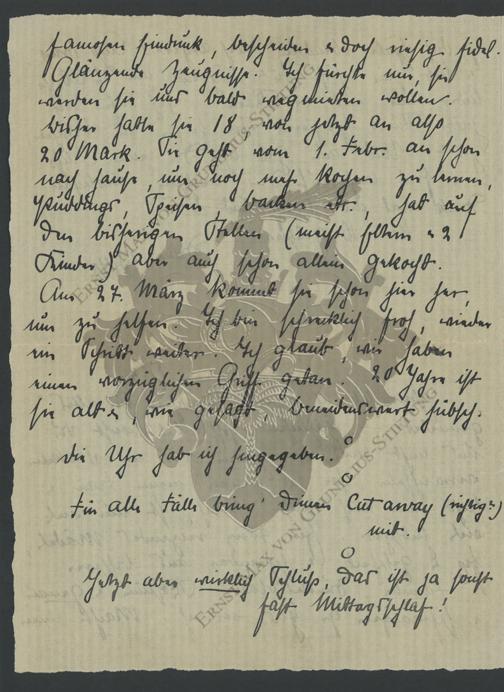 famosen Eindruck, bescheiden u. doch riesig fidel.
Glänzende Zeugnisse. Ich fürchte nur, sie
werden sie uns bald wegmieten wollen.
bisher hatte sie 18 von jetzt an also
20 Mark. Sie geht vom 1. Febr. an schon
nach Hause, um noch mehr Kochen zu lernen,
Puddings, Speisen, backen etc., hat auf
den bisherigen Stellen (meist Eltern u. 2
Kinder) aber auch schon allein gekocht.
Am 27. März kommt sie schon hier her,
um zu helfen. Ich bin schrecklich froh, wieder
ein Schritt weiter. Ich glaub, wir haben
einen vorzüglichen Griff getan. 20 Jahre ist
sie alt u., wie gesagt beneidenswert hübsch.
die Uhr hab ich hingegeben.
Für alle Fälle bring' Deinen Cut away (richtig?)
mit.
Jetzt aber wirklich Schluß, das ist ja sonst
fast Mittagsschlaf!
ERNST-MAX VON GRUNELIUS-STIFTUNG
ERNST MAX VON GRUNELIUS-STIFTUNG